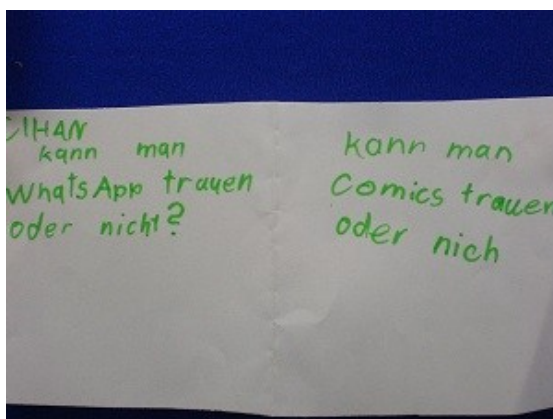 CIHAN
kann man
WhatsApp trauen
oder nicht?
kann man
Comics trauen
oder nich